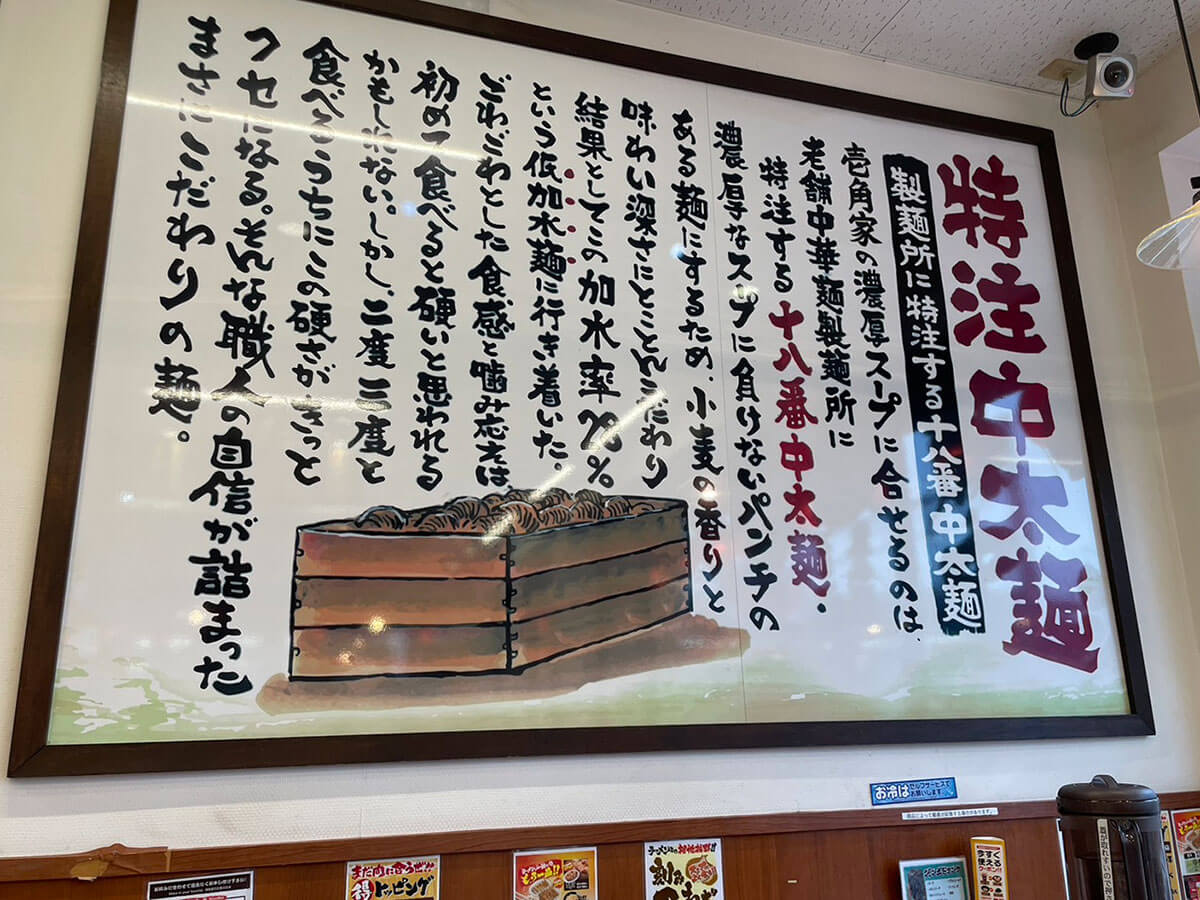 特注中太麺
製麺所に特注する十八番中太麺
壱角家の濃厚スープに合せるのは、
老舗中華麺製麺所に
特注する十八番中太麺。
濃厚なスープに負けないパンチの
ある麺にするため、小麦の香りと
味わい深さにとことんこだわり
結果としてこの加水率28%
という低加水麺に行き着いた。
ごわごわとした食感と噛み応えは
初めて食べると硬いと思われる
かもしれない。しかし、二度三度と
食べるうちにこの硬さがきっと
クセになる。そんな職人の自信が詰まった
まさにこだわりの麺。
お冷は
セルフサービスで
お願いします
まだ肉に合うぜ!!
トッピング
もう一品!!
刻み
今すぐ使える
クーポン!!